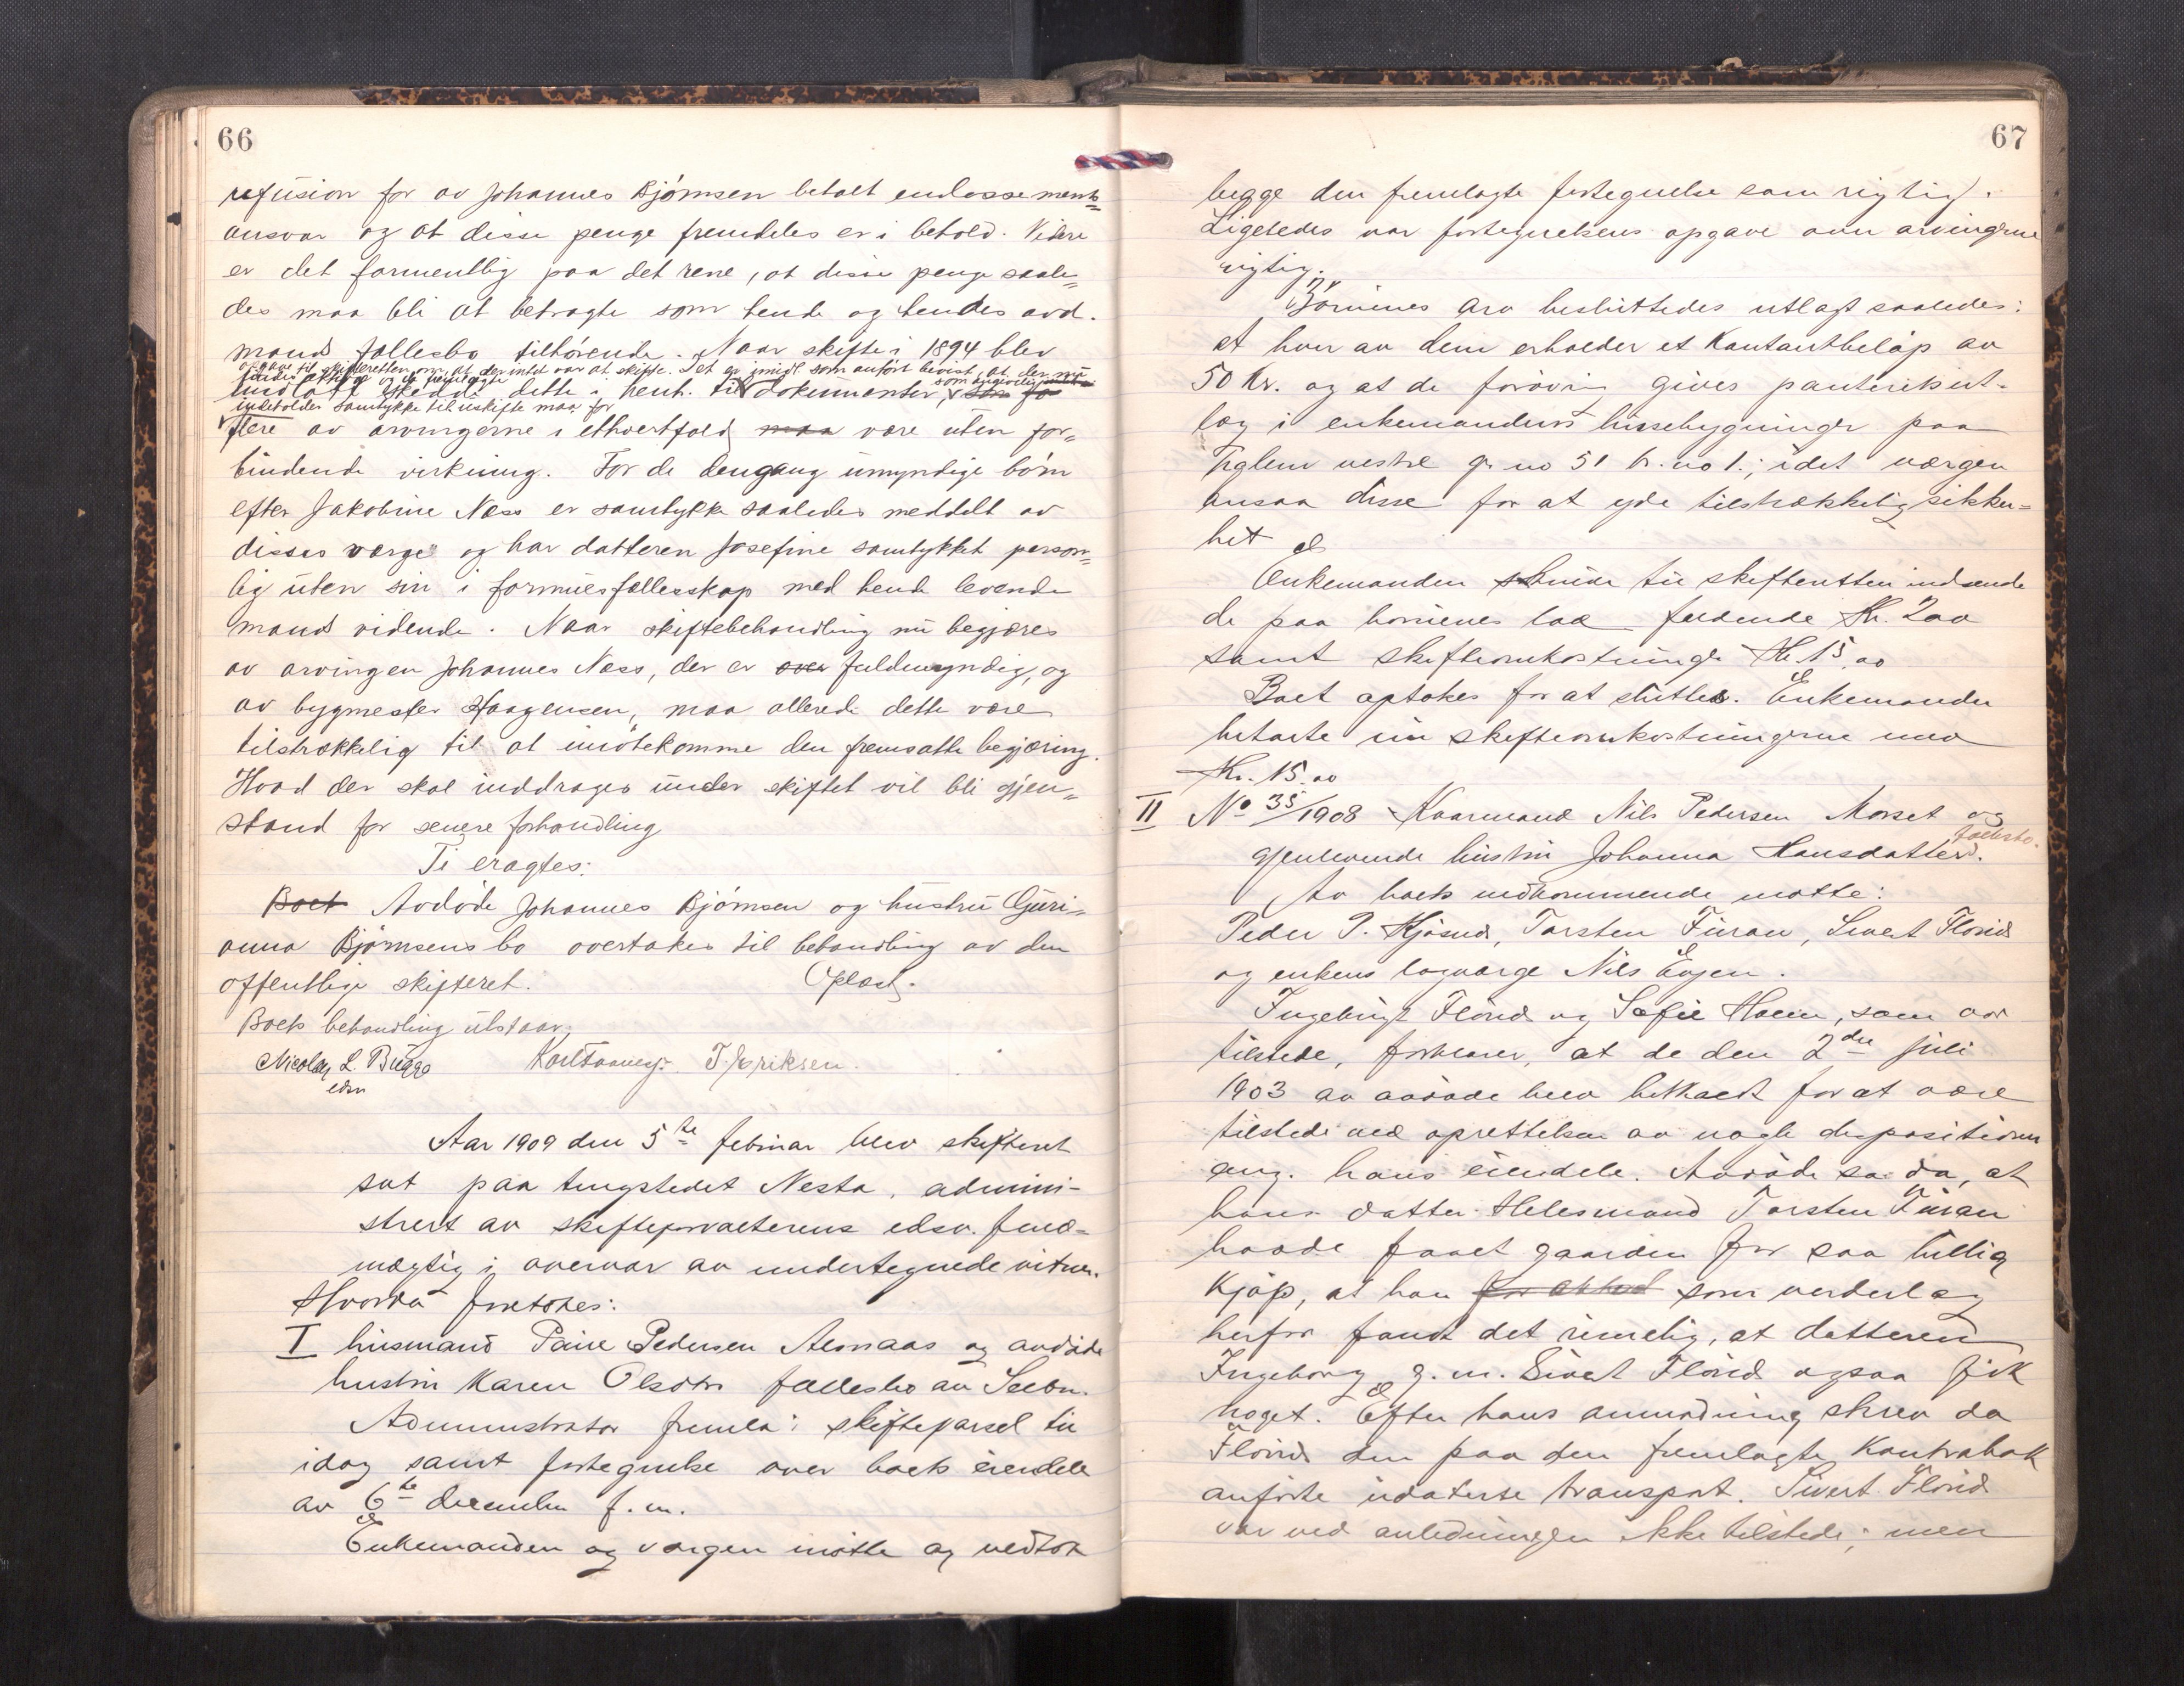 66
refusion for av Johannes Bjørnsen betalt endossements=
ansvar og at disse penge fremdeles er i behold. Videre
er det formentlig paa det rene, at disse penge saale=
des maa bli at betragte som hende og hendes avd.
mands fællesbo tilhørende. Naar skifte i 1894 blev
opgave til skifteretten om, at der intet var at skifte. Det er imidl. som anført bevist, at der nu
findes aktiva og de fremlagte
undlatt skedde dette i henh. til dokumenter, som
indeholder samtykke til uskifte maa for
flere av arvingerne i ethvertfald maa være uten for=
bindende virkning. For de dengang umyndige børn
efter Jakobine Næss er samtykke saaledes meddelt av
disses værge og har datteren Josefine samtykket person=
lig uten sin i formuesfællesskap med hende levende
mands vidende. Naar skiftebehandling nu begjæres
av arvingen Johannes Næss, der er over fuldmyndig, og
av bygmester Haagensen, maa allerede dette være
tilstrækkelig til at imøtekomme den fremsatte begjæring.
Hvad der skal inddrages under skiftet vil bli gjen=
stand for senere forhandling
Ti eragtes:
Boet Avdøde Johannes Bjørnsen og hustru Guri=
anna Bjørnsens bo overtakes til behandling av den
offentlige skifteret. Oplæst.
Boets behandling utstaar.
Nicolay L. Bugge
edsv
T. Eriksen.
Aar 1909 den 5te februar blev skifteret
sat paa tingstedet Nesta, admini-
strert av skifteforvalterens edsv. fuld=
mægtig i overvær av undertegnede vitner.
Hvorda foretokes:
I husmand Paul Pedersen Aesnaas og avdøde
hustru Karen Olsdtr fællesbo av Selbu.
Administrator fremla: skifteforsel til
idag samt fortegnelse over boets eiendele
av 6te december f. m.
Enkemanden og værgen møtte og vedtok
67
begge den fremlagte fortegnelse som rigtig.
Ligeledes var fortegnelsens opgave over arvingerne
rigtig.
Børnenes arv besluttedes utlagt saaledes:
at hver av dem erholder et kontantbeløp av
50 Kr. og at de forøvrig gives panterik ut-
læg i enkemandens husebygninger paa
Uglem vestre gr. no 51 br. no 1; idet værgen
ansaa disse for at yde tilstrækkelig sikker=
het
Enkemanden skulde til skifteretten indsende
de paa børnenes lod faldende Kr. 200
samt skifteomkostninger Kr. 15.00
Boet optokes for at sluttes. Enkemanden
betalte nu skifteomkostningerne med
Kr. 15.00
II No 35/1908 Kaarmand Nils Pedersen Morset og
gjenlevende hustru Johanna Hansdatters fællesbo.
Av boets vedkommende møtte:
Peder P. Kjøsnes, Torsten Furan, Sivert Flønes
og enkens lagværge Nils Evjen.
Ingebrigt Flønes og Sofie Moen, som var
tilstede, forklarer, at de den 2den juli
1903 av avdøde blev tilkaldt for at være
tilstede ved oprettelsen av nogle dispositioner
ang. hans eiendele. Avdøde sa da, at
hans datter Heles mand Torsten Furan
hadde faaet gaarden for saa billig
kjøp, at han som vederlag
herfor fandt det rimelig, at datteren
Ingeborg g. m. Sivert Flønes ogsaa fik
noget. Efter hans anmodning skrev da
Flønes den paa den fremlagte kontrabok
anførte udaterte transport. Sivert Flønes
var ved anledningen ikke tilstede; men